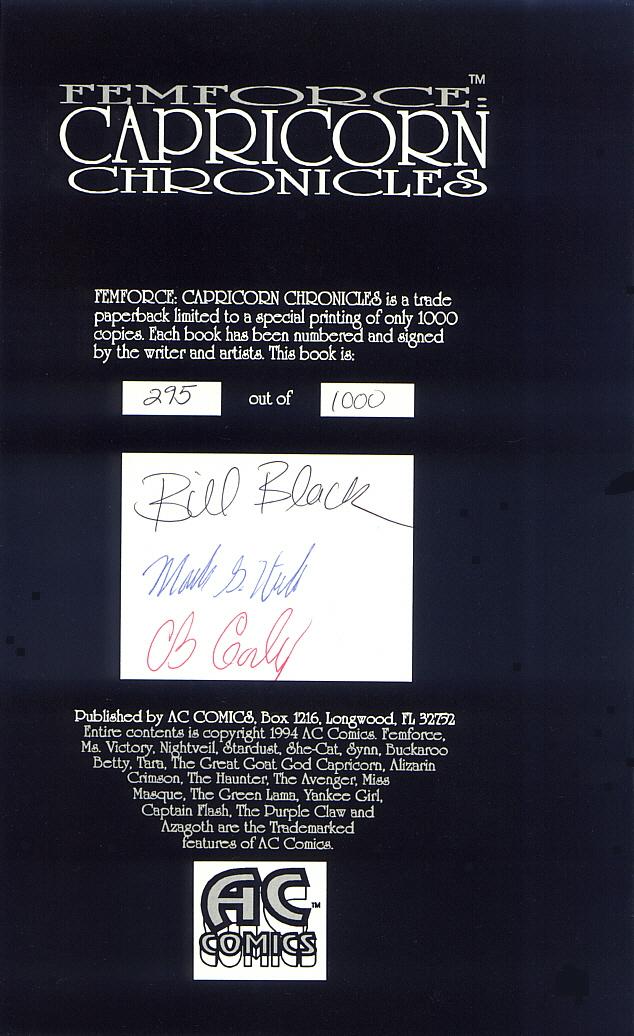 FEMFORCE:™
CAPRICORN
CHRONICLES
FEMFORCE: CAPRICORN CHRONICLES is a trade
paperback limited to a special printing of only 1000
copies. Each book has been numbered and signed
by the writer and artists. This book is:
295 out of 1000
Bill Black
Mark G. Heik
CB Gorby
Published by AC COMICS, Box 1216, Longwood, FL 32752
Entire contents is copyright 1994 AC Comics. Femforce,
Ms. Victory, Nightveil, Stardust, She-Cat, Synn, Buckaroo
Betty, Tara, The Great Goat God Capricorn, Alizarin
Crimson, The Haunter, The Avenger, Miss
Masque, The Green Lama, Yankee Girl,
Captain Flash, The Purple Claw and
Azagoth are the Trademarked
features of AC Comics.
AC™
COMICS